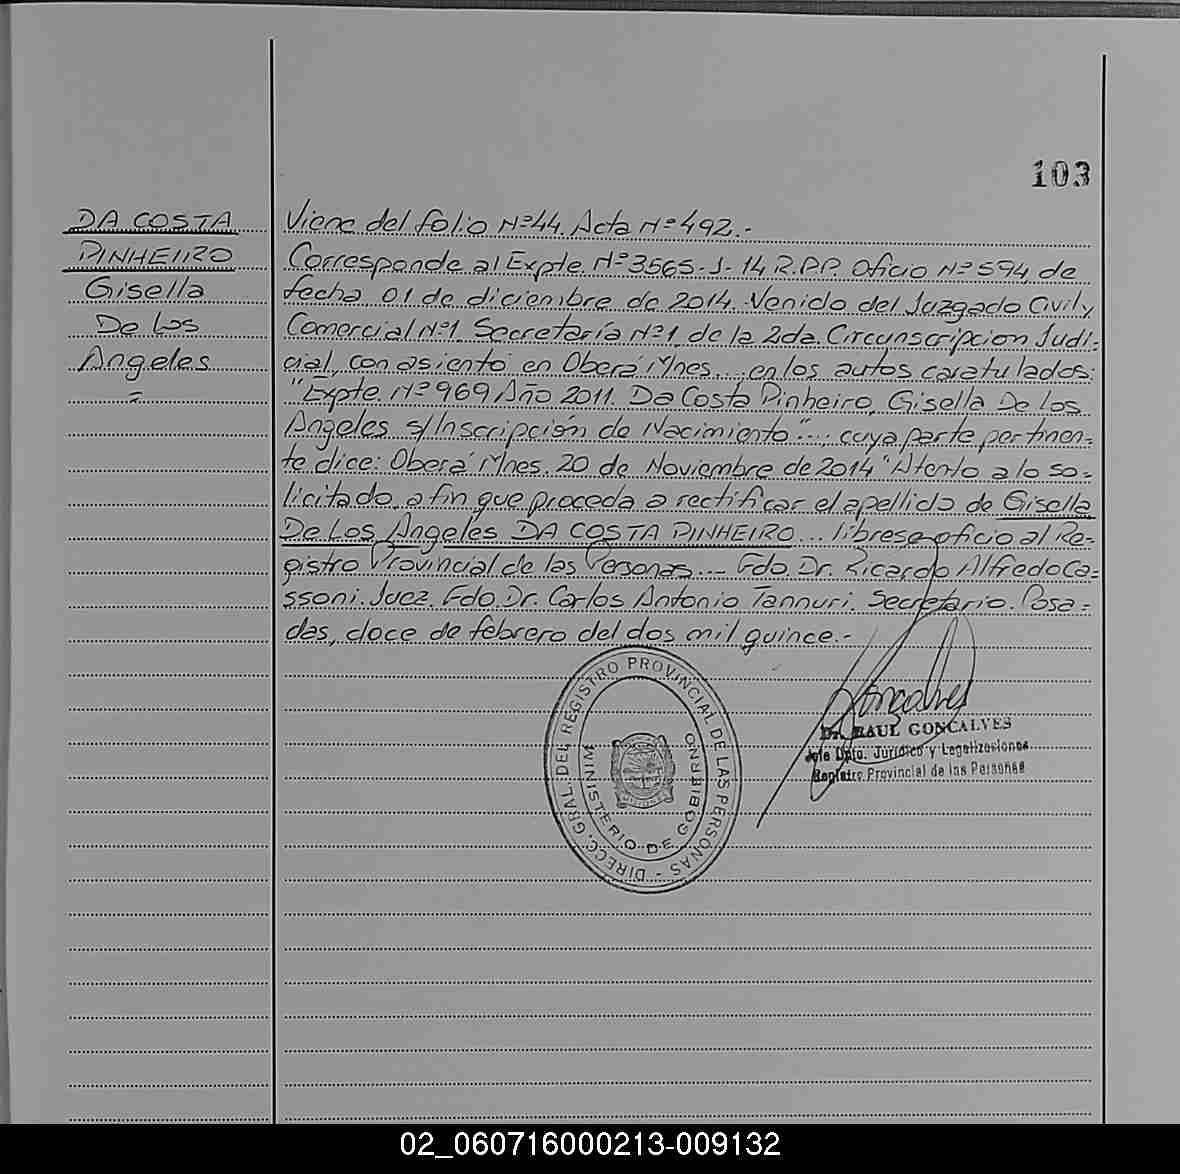 103
DA COSTA
PINHEIRO
Gisella
De los
Angeles
=
Viene del folio Nº44. Acta Nº492.-
Corresponde al Expte. Nº3565-J-14 R.P.P. Oficio Nº594, de
fecha 01 de diciembre de 2014. Venido del Juzgado Civil y
Comercial Nº1, Secretaría Nº1, de la 2da. Circunscripcion Judi=
cial, con asiento en Oberá Mnes.... en los autos caratulados:
"Expte. Nº969 Año 2011. Da Costa Pinheiro, Gisella De Los
Angeles s/Inscripción de Nacimiento"..., cuya parte pertinen=
te dice: Oberá Mnes. 20 de Noviembre de 2014 "Atento a lo so=
licitado, a fin que proceda a rectificar el apellido de Gisella
De Los Angeles DA COSTA PINHEIRO... librese oficio al Re=
gistro Provincial de las Personas... Fdo. Dr. Ricardo Alfredo Ca=
ssoni. Juez. Fdo. Dr. Carlos Antonio Tannuri. Secretario. Posa=
das, doce de febrero del dos mil quince.-
DIRECC. GRAL. DEL REGISTRO PROVINCIAL DE LAS PERSONAS -
MINISTERIO DE GOBIERNO
Goncalves
Dr. RAUL GONCALVES
Jefe Dpto. Jurídico y Legalizaciones
Registro Provincial de las Personas
02_060716000213-009132